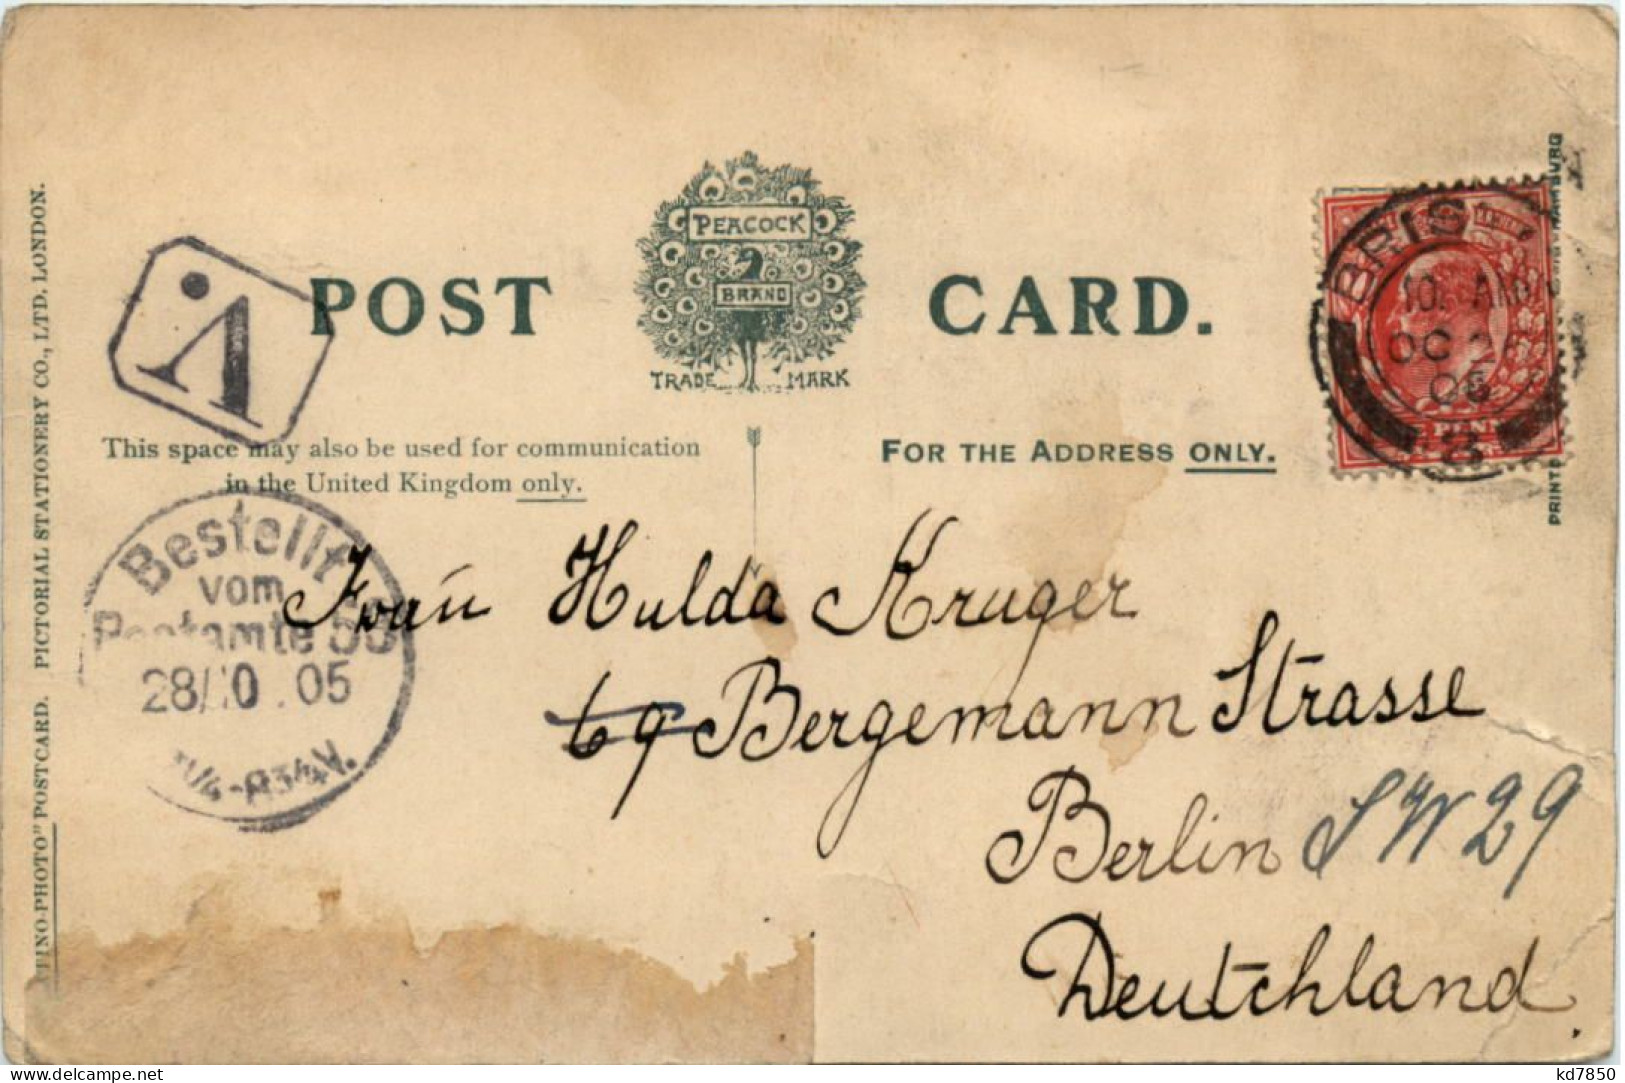 POST CARD.
PEACOCK
BRAND
TRADE MARK
V.
This space may also be used for communication
in the United Kingdom only.
FOR THE ADDRESS ONLY.
10. AM
OC 2
05
2
Bestellt
vom
Postamte
28/10.05
Frau Hulda Kruger
69 Bergemann Strasse
Berlin SW 29
Deutchland.
PHOTO" POSTCARD. PICTORIAL STATIONERY CO., LTD. LONDON.
delcampe.net
kd7850